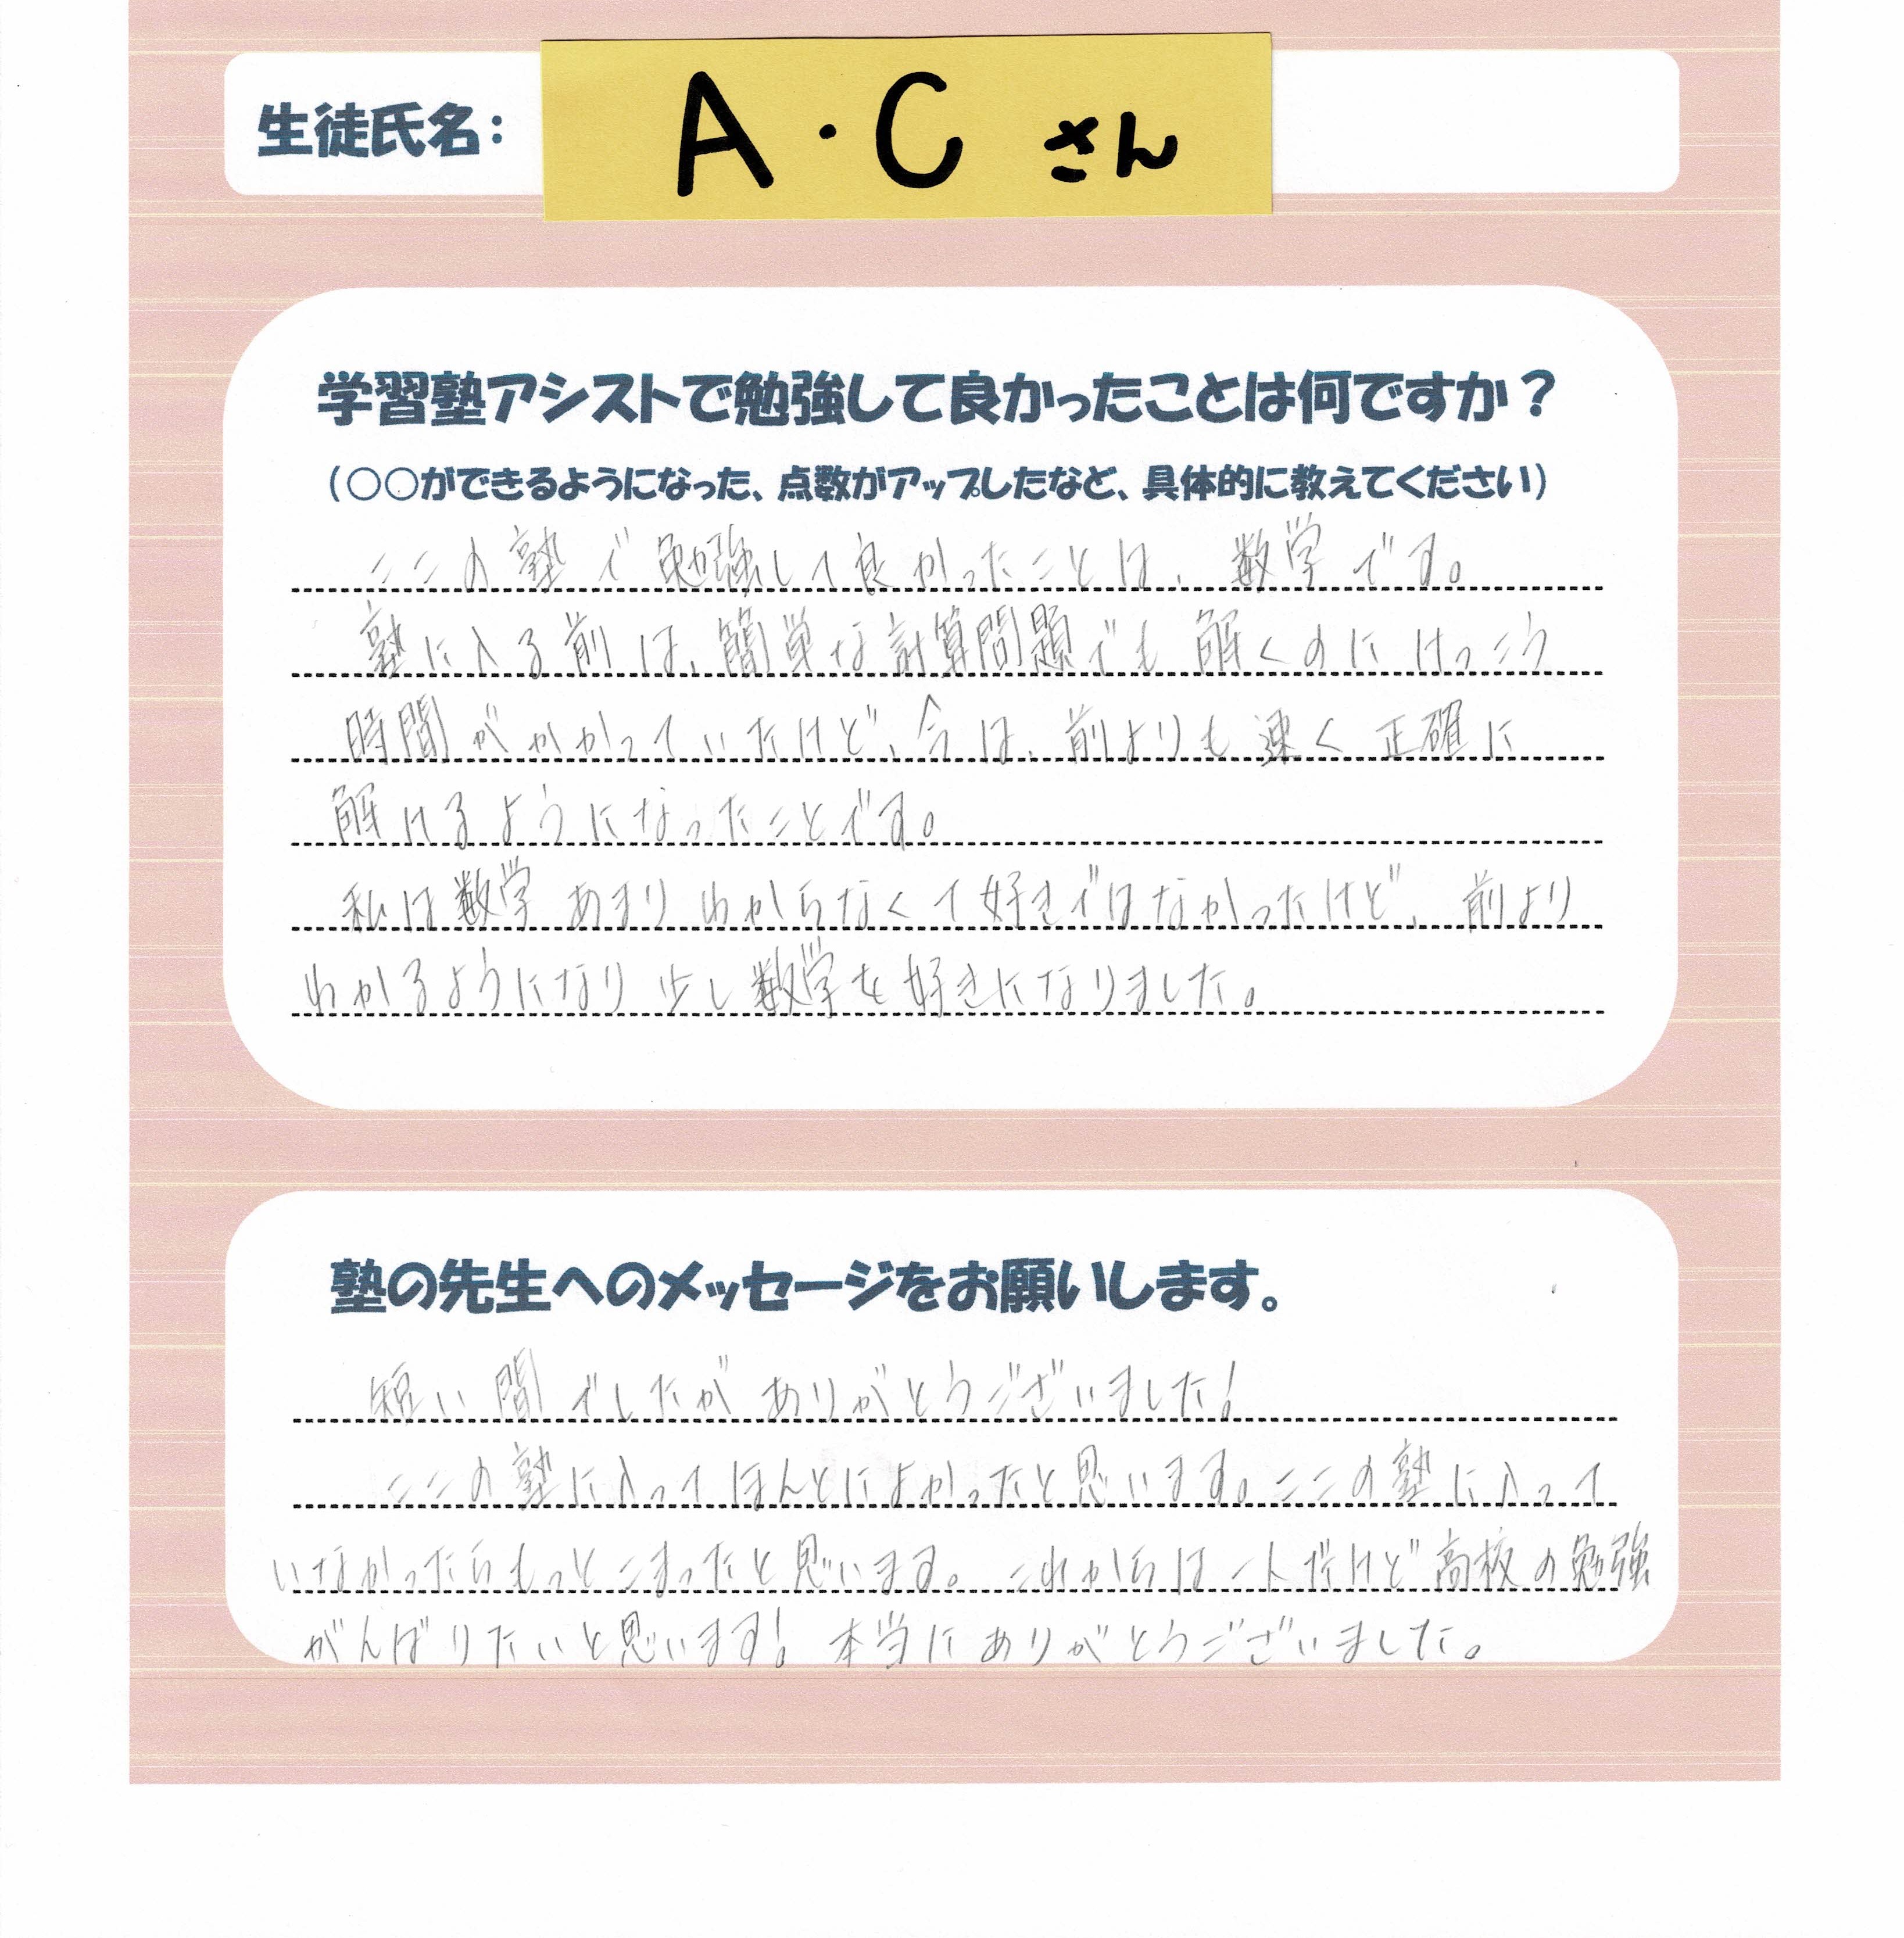 生徒氏名：
A・Cさん
学習塾アシストで勉強して良かったことは何ですか？
（○○ができるようになった、点数がアップしたなど、具体的に教えてください）
ここの塾で勉強して良かったことは、数学です。
塾に入る前は、簡単な計算問題でも解くのにけっこう
時間がかかっていたけど、今は、前よりも速く正確に
解けるようになったことです。
私は数学あまりわからなくて好きではなかったけど、前より
わかるようになり少し数学を好きになりました。
塾の先生へのメッセージをお願いします。
短い間でしたがありがとうございました！
ここの塾に入ってほんとによかったと思います。ここの塾に入って
いなかったらもっとこまったと思います。これからは一人だけど高校の勉強
がんばりたいと思います！本当にありがとうございました。